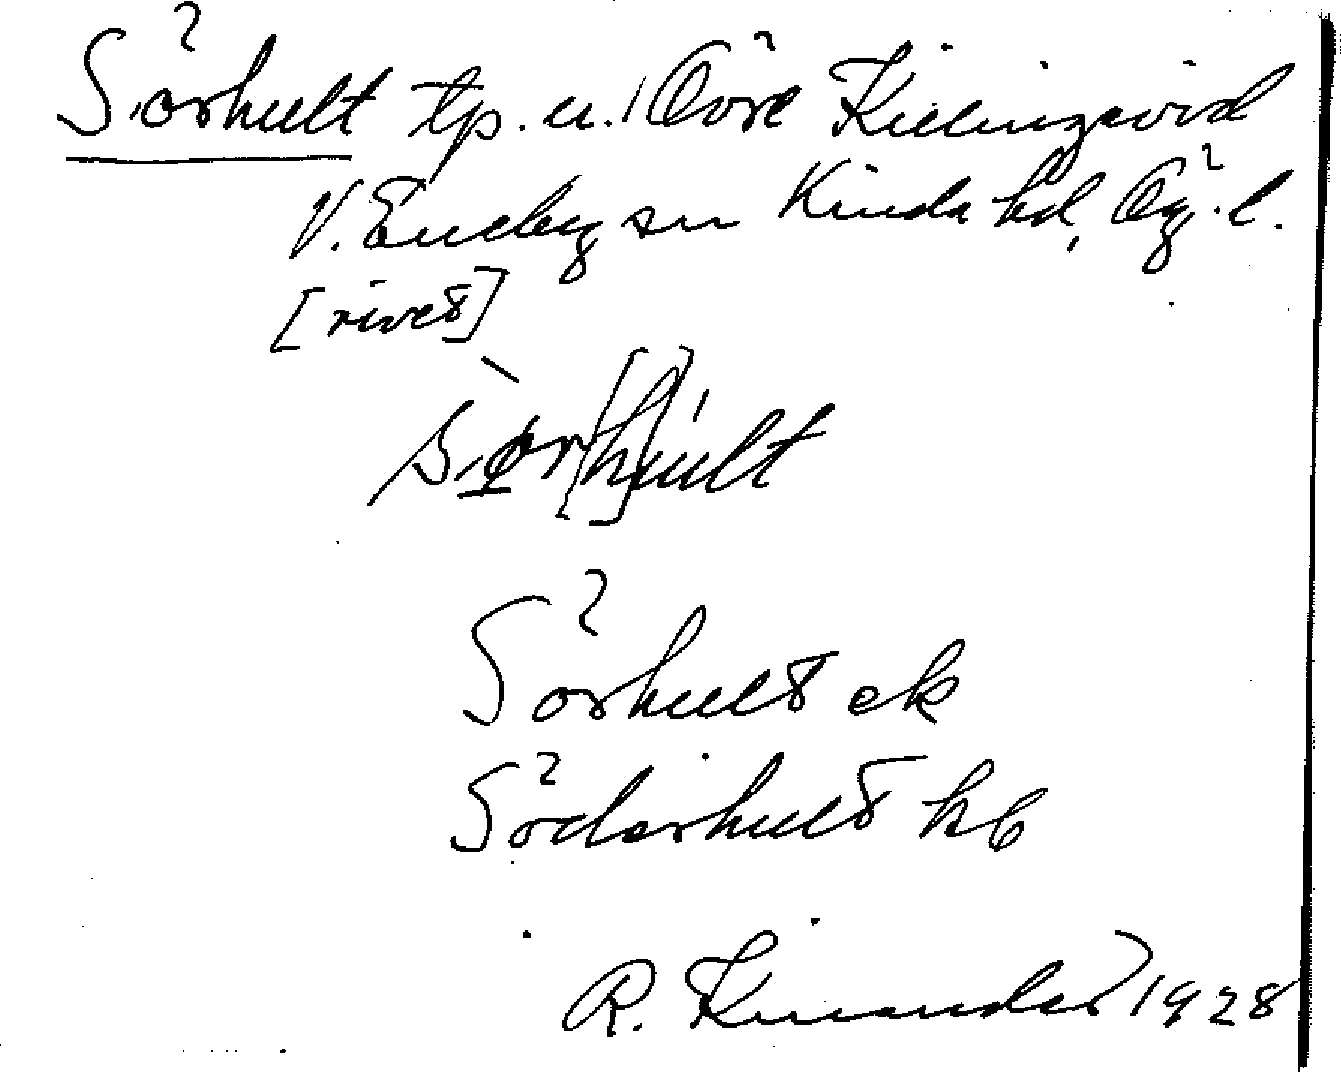 Sörhult tp. u. Övre Killingevid
V. Eneby sn Kinda hd, Ög. l.
[rivet]
sör[h]ult
Sörhult ek
Söderhult hb
R. Kinander 1928